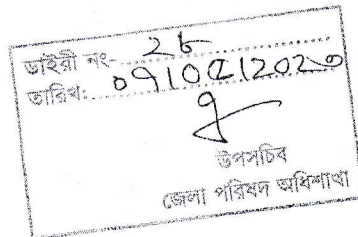 ডাইরী নং- ২৮
তারিখ: ০৭।০৫।২০২৩
উপসচিব
জেলা পরিষদ অধিশাখা